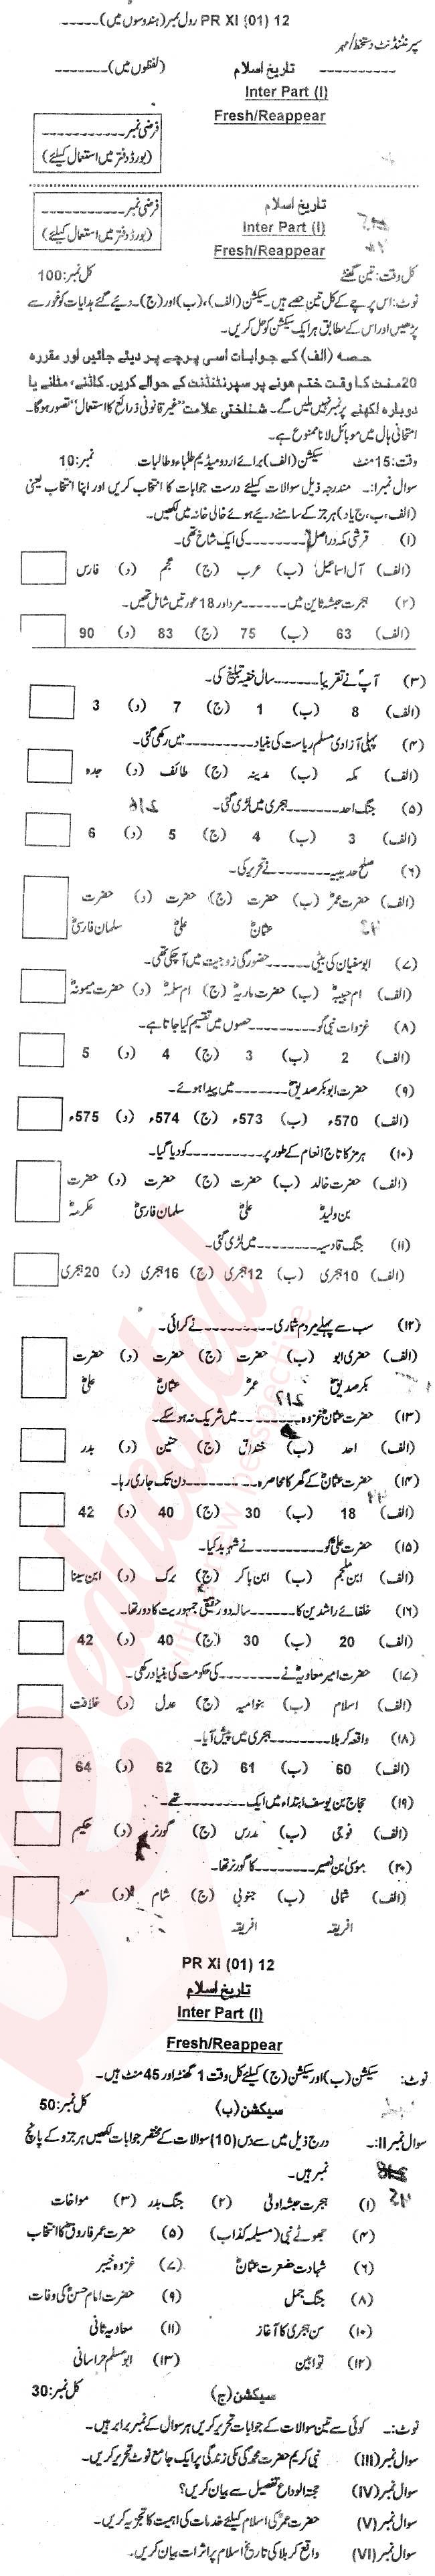 PR XI (01) 12 رول نمبر (ہندوسوں میں)۔۔۔۔۔
سپرنٹنڈنٹ دستخط/مہر
۔۔۔۔۔۔۔۔۔۔ تاریخ اسلام (لفظوں میں)۔۔۔۔۔۔۔
Inter Part (I)
Fresh/Reappear
فرضی نمبر۔۔۔۔۔۔۔۔۔۔
(بورڈ دفتر میں استعمال کیلئے)
تاریخ اسلام
Inter Part (I)
Fresh/Reappear
فرضی نمبر۔۔۔۔۔۔۔۔۔۔
(بورڈ دفتر میں استعمال کیلئے)
کل وقت: تین گھنٹے کل نمبر: 100
نوٹ: اس پرچے کے کل تین حصے ہیں۔ سیکشن (الف)، (ب) اور (ج)۔ دیئے گئے ہدایات کو غور سے
پڑھیں اور اس کے مطابق ہر ایک سیکشن کو حل کریں۔
حصہ (الف) کے جوابات اسی پرچے پر دیئے جائیں اور مقررہ
20 منٹ کا وقت ختم ہونے پر سپرنٹنڈنٹ کے حوالے کریں۔ کاٹنے، مٹانے یا
دوبارہ لکھنے پر نمبر نہیں ملیں گے۔ شناختی علامت "غیر قانونی ذرائع کا استعمال" تصور ہوگا۔
امتحانی ہال میں موبائل لانا ممنوع ہے۔
وقت: 15 منٹ سیکشن (الف) برائے اردو میڈیم طلباء و طالبات نمبر: 10
سوال نمبر I:۔ مندرجہ ذیل سوالات کیلئے درست جوابات کا انتخاب کریں اور اپنا انتخاب یعنی
(الف، ب، ج یا د) ہر جز کے سامنے دیئے ہوئے خالی خانہ میں لکھیں۔
(۱) قرشی مکہ دراصل۔۔۔۔۔۔۔۔کی ایک شاخ تھی۔
(الف) آل اسماعیل (ب) عرب (ج) عجم (د) فارس
(۲) ہجرت حبشہ ثانی میں۔۔۔۔۔۔مرد اور 18 عورتیں شامل تھیں۔
(الف) 63 (ب) 75 (ج) 83 (د) 90
(۳) آپؐ نے تقریباً۔۔۔۔۔۔سال خفیہ تبلیغ کی۔
(الف) 8 (ب) 1 (ج) 7 (د) 3
(۴) پہلی آزادی مسلم ریاست کی بنیاد۔۔۔۔۔۔۔۔میں رکھی گئی۔
(الف) مکہ (ب) مدینہ (ج) طائف (د) جدہ
(۵) جنگ احد۔۔۔۔۔۔۔۔ہجری میں لڑی گئی۔
(الف) 3 (ب) 4 (ج) 5 (د) 6
(۶) صلح حدیبیہ۔۔۔۔۔۔۔نے تحریر کی۔
(الف) حضرت عمرؓ (ب) حضرت (ج) حضرت (د) حضرت
عثمانؓ علیؓ سلمان فارسیؓ
(۷) ابوسفیان کی بیٹی۔۔۔۔۔۔حضورؐ کی زوجیت میں آ چکی تھی۔
(الف) ام حبیبہؓ (ب) حضرت ماریہؓ (ج) ام سلمہؓ (د) حضرت میمونہؓ
(۸) غزوات نبیؐ کو۔۔۔۔۔۔۔۔حصوں میں تقسیم کیا جاتا ہے۔
(الف) 2 (ب) 3 (ج) 4 (د) 5
(۹) حضرت ابوبکر صدیقؓ۔۔۔۔۔۔۔میں پیدا ہوئے۔
(الف) 570ء (ب) 573ء (ج) 574ء (د) 575ء
(۱۰) ہرمز کا تاج انعام کے طور پر۔۔۔۔۔۔۔۔کو دیا گیا۔
(الف) حضرت خالد (ب) حضرت (ج) حضرت (د) حضرت
بن ولیدؓ علیؓ سلمان فارسیؓ عکرمہؓ
(۱۱) جنگ قادسیہ۔۔۔۔۔۔۔میں لڑی گئی۔
(الف) 10 ہجری (ب) 12 ہجری (ج) 16 ہجری (د) 20 ہجری
(۱۲) سب سے پہلے مردم شماری۔۔۔۔۔۔۔۔نے کرائی۔
(الف) حضری ابو (ب) حضرت (ج) حضرت (د) حضرت
بکر صدیقؓ عمرؓ عثمانؓ علیؓ
(۱۳) حضرت عثمانؓ غزوہ۔۔۔۔۔۔۔میں شریک نہ ہو سکے۔
(الف) احد (ب) خندق (ج) حنین (د) بدر
(۱۴) حضرت عثمانؓ کے گھر کا محاصرہ۔۔۔۔۔۔دن تک جاری رہا۔
(الف) 18 (ب) 30 (ج) 40 (د) 42
(۱۵) حضرت علیؓ کو۔۔۔۔۔۔۔نے شہید کیا۔
(الف) ابن ملجم (ب) ابن باکر (ج) برک (د) ابن سینا
(۱۶) خلفائے راشدین کا۔۔۔۔۔۔سالہ دور حقیقی جمہوریت کا دور تھا۔
(الف) 20 (ب) 30 (ج) 40 (د) 42
(۱۷) حضرت امیر معاویہؓ نے۔۔۔۔۔۔۔۔کی حکومت کی بنیاد رکھی۔
(الف) اسلام (ب) بنوامیہ (ج) عدل (د) خلافت
(۱۸) واقعہ کربلا۔۔۔۔۔۔۔ہجری میں پیش آیا۔
(الف) 60 (ب) 61 (ج) 62 (د) 64
(۱۹) حجاج بن یوسف ابتداء میں ایک۔۔۔۔۔۔۔تھے۔
(الف) فوجی (ب) مدرس (ج) گورنر (د) حکیم
(۲۰) موسیٰ بن نصیر۔۔۔۔۔۔۔۔کا گورنر تھا۔
(الف) شمالی (ب) جنوبی (ج) شام (د) مصر
افریقہ افریقہ
PR XI (01) 12
تاریخ اسلام
Inter Part (I)
Fresh/Reappear
نوٹ: سیکشن (ب) اور سیکشن (ج) کیلئے کل وقت 1 گھنٹہ اور 45 منٹ ہیں۔
سیکشن (ب) کل نمبر: 50
سوال نمبر II:۔ درج ذیل میں سے دس (10) سوالات کے مختصر جوابات لکھیں ہر جزو کے پانچ
نمبر ہیں۔
(۱) ہجرت حبشہ اولیٰ (۲) جنگ بدر (۳) مواخات
(۴) جھوٹے نبی (مسیلمہ کذاب) (۵) حضرت عمر فاروقؓ کا انتخاب
(۶) شہادت حضرت عثمانؓ (۷) غزوہ خیبر
(۸) جنگ جمل (۹) حضرت امام حسنؓ کی وفات
(۱۰) سن ہجری کا آغاز (۱۱) معاویہ ثانی
(۱۲) توابین (۱۳) ابو مسلم خراسانی
سیکشن (ج) کل نمبر: 30
نوٹ:۔ کوئی سے تین سوالات کے جوابات تحریر کریں ہر سوال کے نمبر برابر ہیں۔
سوال نمبر (III) نبی کریم حضرت محمدؐ کی مکی زندگی پر ایک جامع نوٹ تحریر کریں۔
سوال نمبر (IV) حجۃ الوداع تفصیل سے بیان کریں؟
سوال نمبر (V) حضرت عمرؓ کی اسلام کیلئے خدمات کی اہمیت کا تجزیہ کریں۔
سوال نمبر (VI) واقع کربلا کی تاریخ اسلام پر اثرات بیان کریں۔